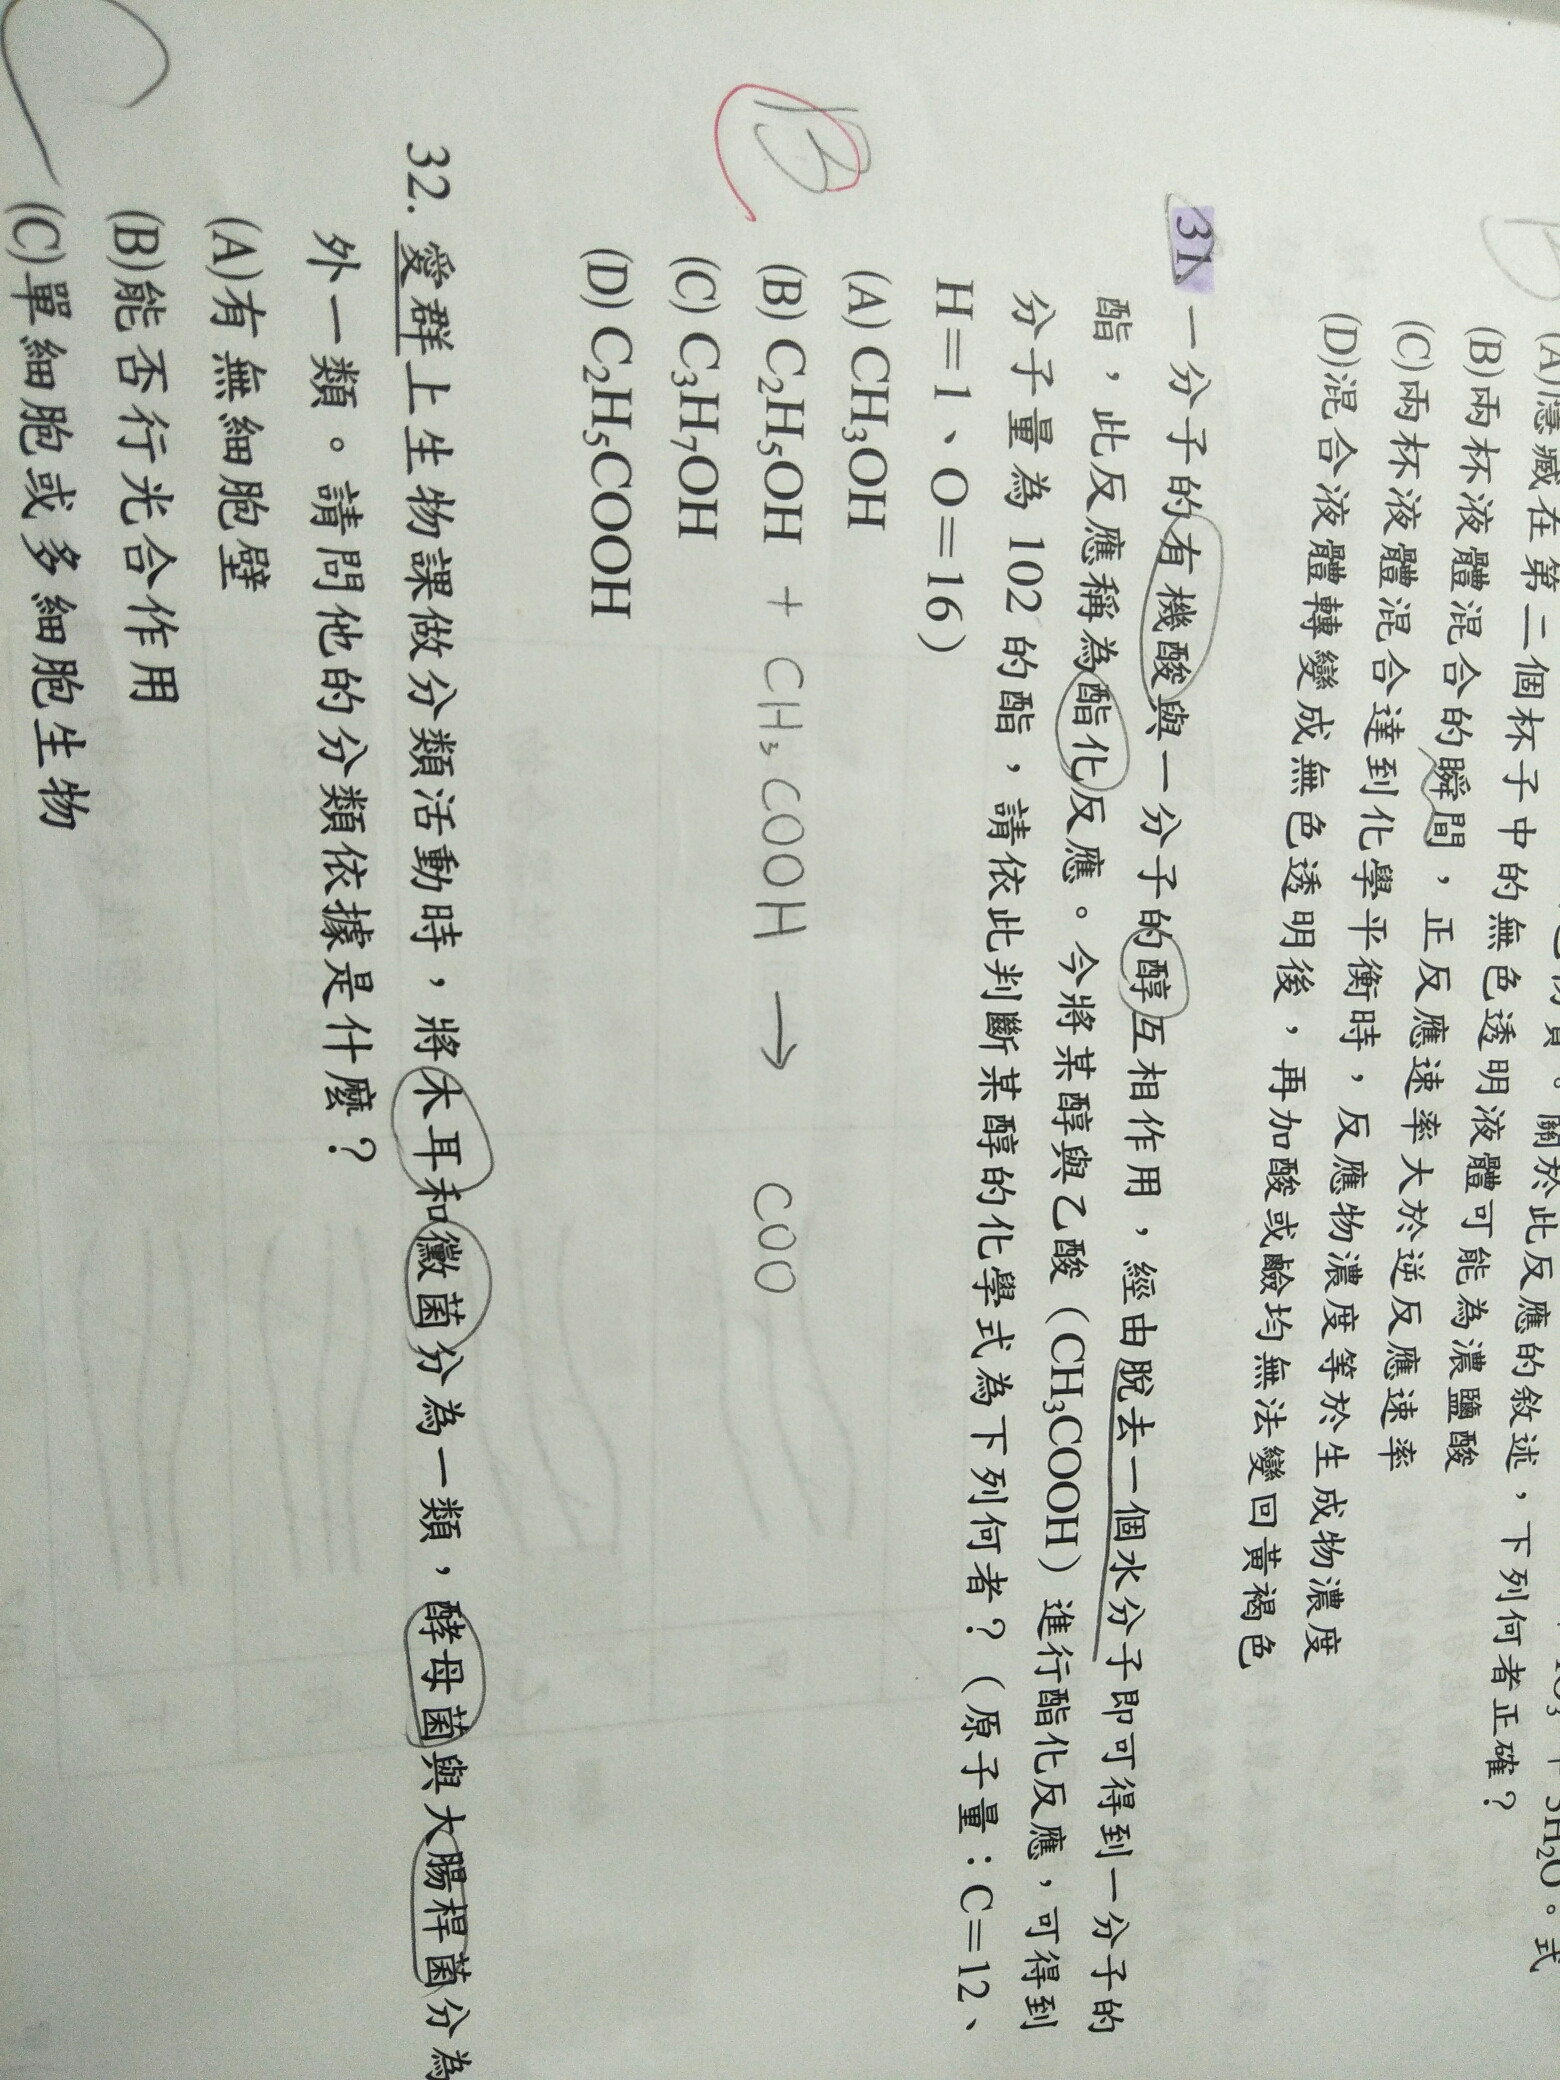 (A)隱藏在第二個杯子中的無色透明液體可能為濃鹽酸
(B)兩杯液體混合的瞬間，正反應速率大於逆反應速率
(C)兩杯液體混合達到化學平衡時，反應物濃度等於生成物濃度
(D)混合液體轉變成無色透明後，再加酸或鹼均無法變回黃褐色
31. 一分子的有機酸與一分子的醇互相作用，經由脫去一個水分子即可得到一分子的
酯，此反應稱為酯化反應。今將某醇與乙酸（CH₃COOH）進行酯化反應，可得到
分子量為 102 的酯，請依此判斷某醇的化學式為下列何者？（原子量：C＝12、
H＝1、O＝16）
(A) CH₃OH
B
(B) C₂H₅OH + CH₃COOH → COO
(C) C₃H₇OH
(D) C₂H₅COOH
32. 愛群上生物課做分類活動時，將木耳和黴菌分為一類，酵母菌與大腸桿菌分為
外一類。請問他的分類依據是什麼？
(A)有無細胞壁
(B)能否行光合作用
(C)單細胞或多細胞生物